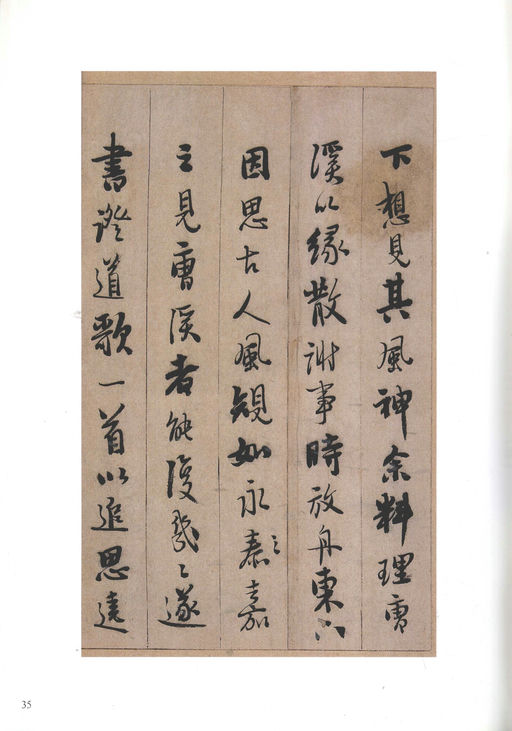 下想見其風神余料理曹
溪以緣散謝事時放舟東
因思古人風規如永泰嘉
之見曹溪者能復幾〻遂
書證道歌一首以追思遠
35